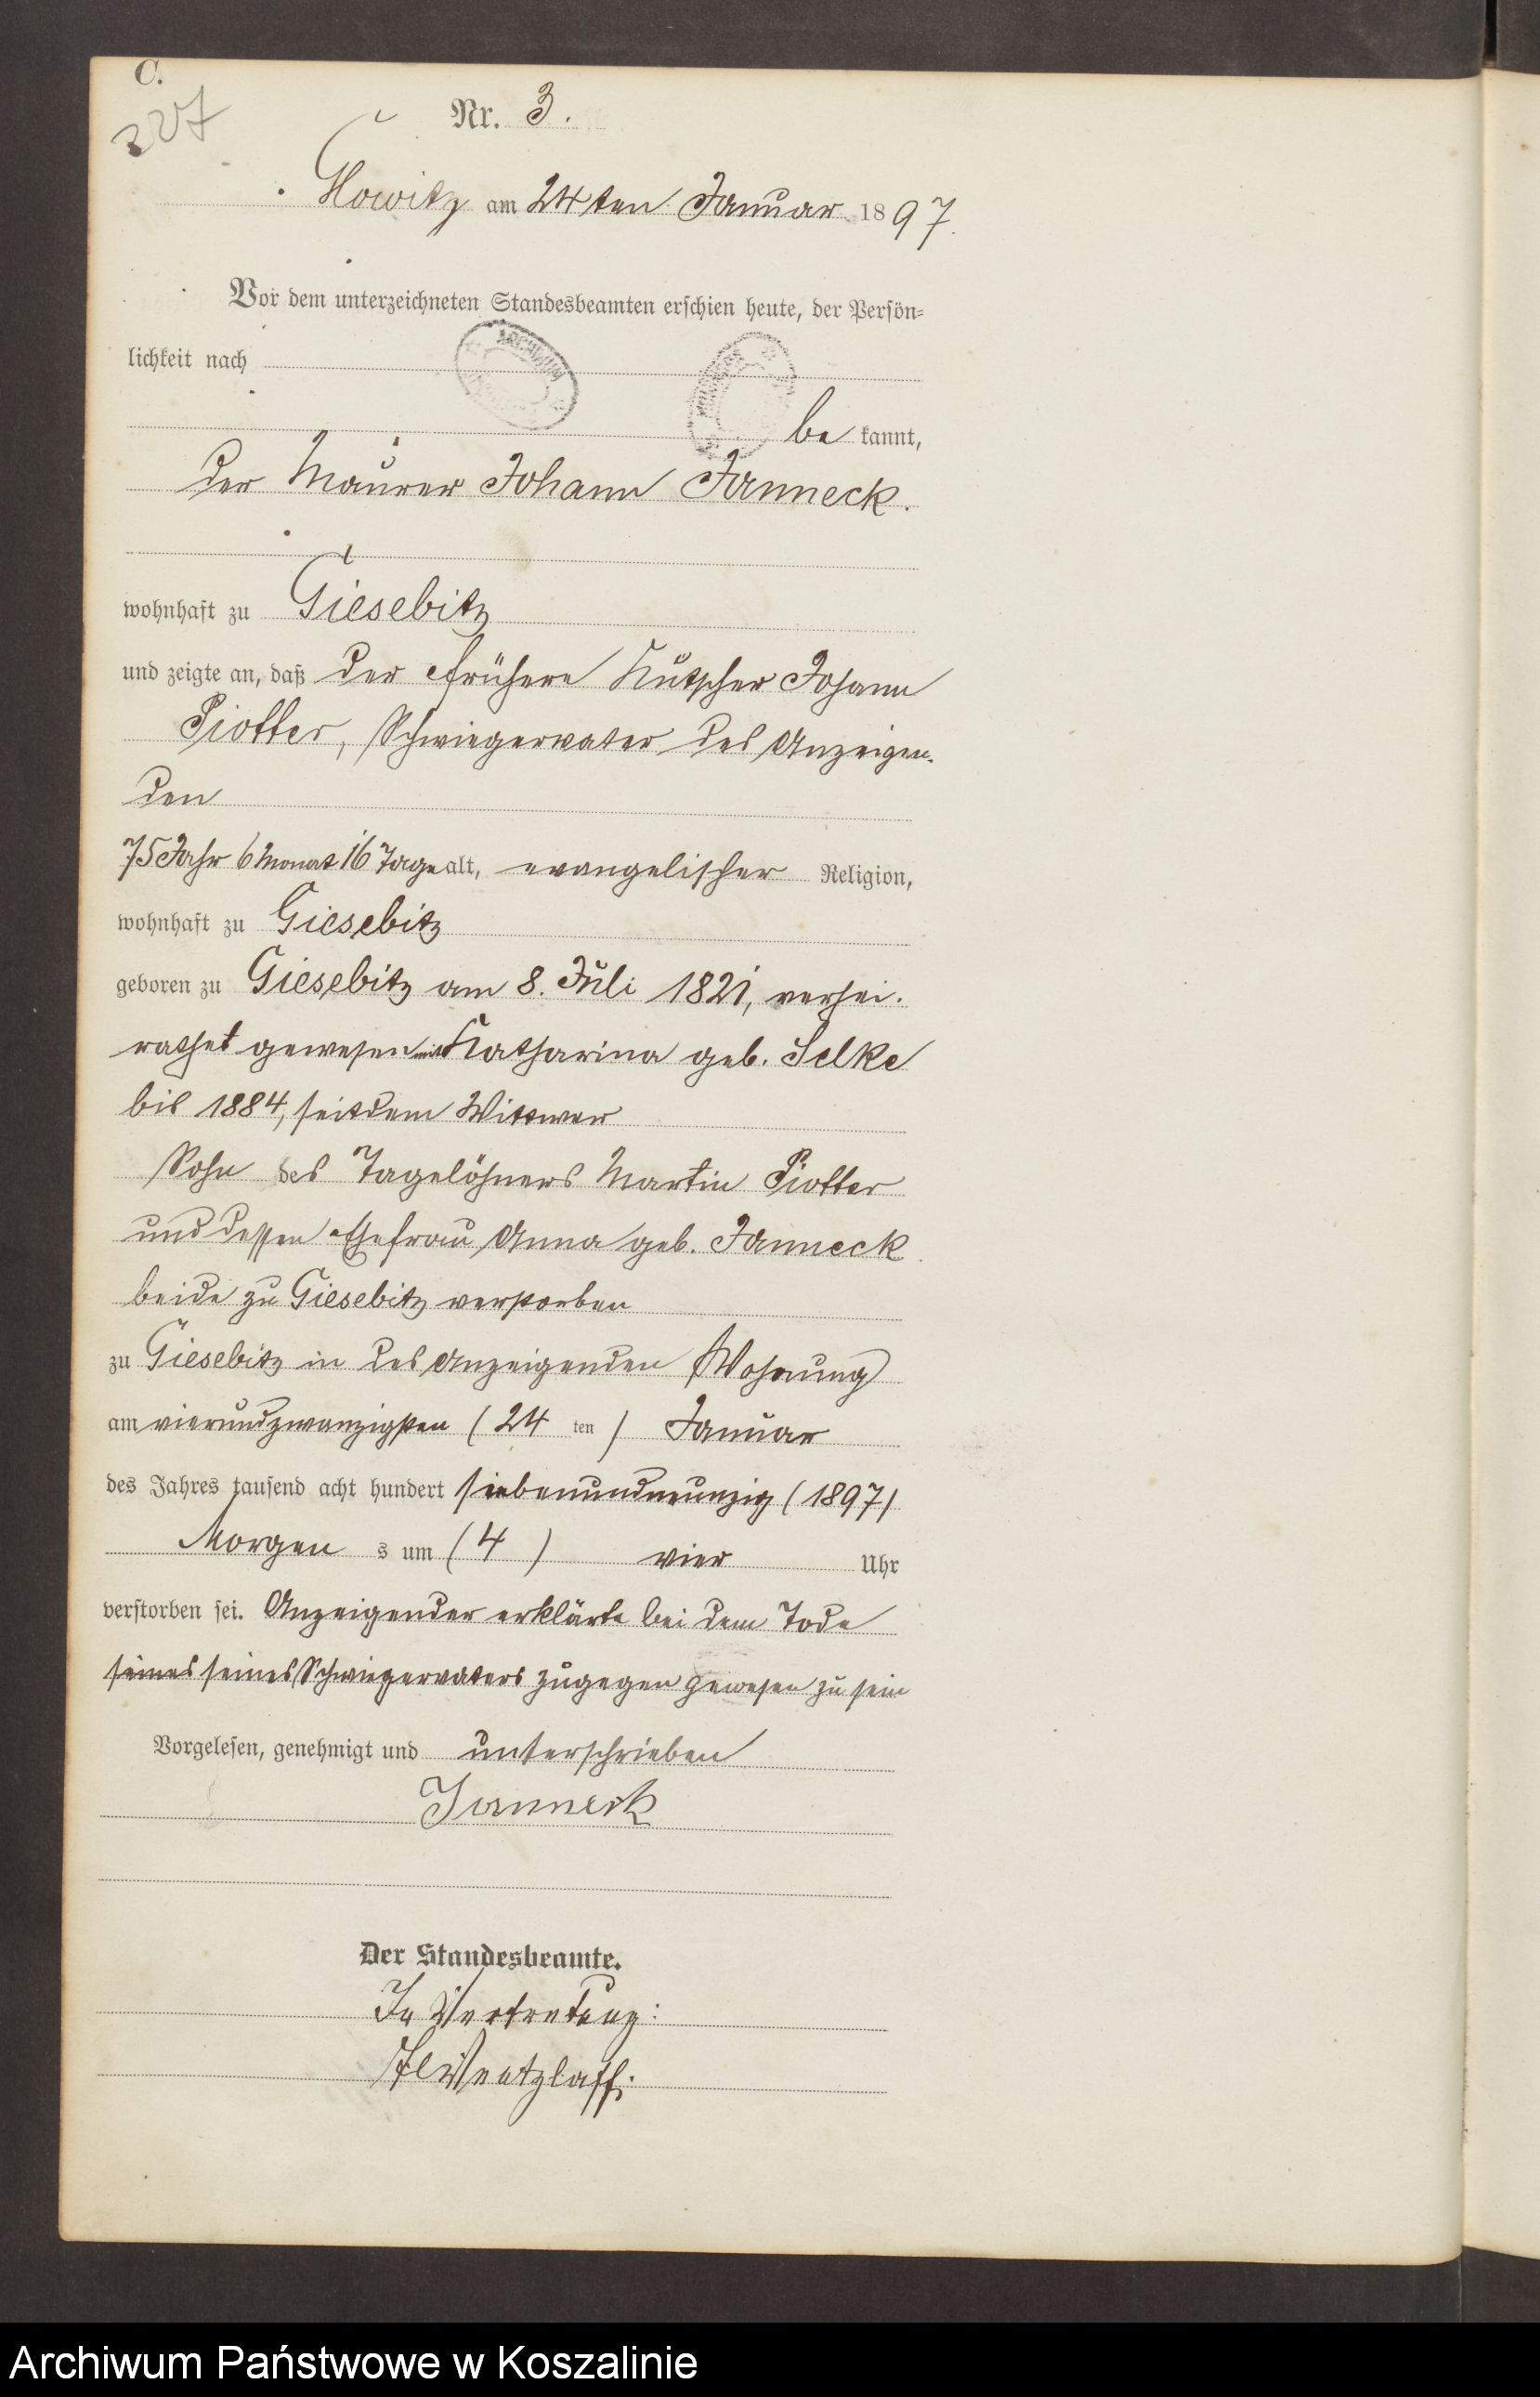 C.
227
Nr. 3.
Glowitz am 24ten Januar 1897.
Vor dem unterzeichneten Standesbeamten erschien heute, der Persön-
lichkeit nach
ARCHIWUM
be kannt,
der Maurer Johann Janneck.
wohnhaft zu Giesebitz
und zeigte an, daß der frühere Kutscher Johann
Piotter, Schwiegervater des Anzeigen-
den
75 Jahr 6 Monat 16 Tage alt, evangelischer Religion,
wohnhaft zu Giesebitz
geboren zu Giesebitz am 8. Juli 1821, verhei-
rathet gewesen mit Katharina geb. Selke
bis 1884, seitdem Wittwer
Sohn des Tagelöhners Martin Piotter
und dessen Ehefrau Anna geb. Janneck
beide zu Giesebitz verstorben
zu Giesebitz in des Anzeigenden Wohnung
am vierundzwanzigsten (24 ten) Januar
des Jahres tausend acht hundert siebenundneunzig (1897)
Morgen s um (4) vier Uhr
verstorben sei. Anzeigender erklärte bei dem Tode
seines seines Schwiegervaters zugegen gewesen zu sein
Vorgelesen, genehmigt und unterschrieben
Janneck
Der Standesbeamte.
In Vertretung:
Wentzlaff.
Archiwum Państwowe w Koszalinie